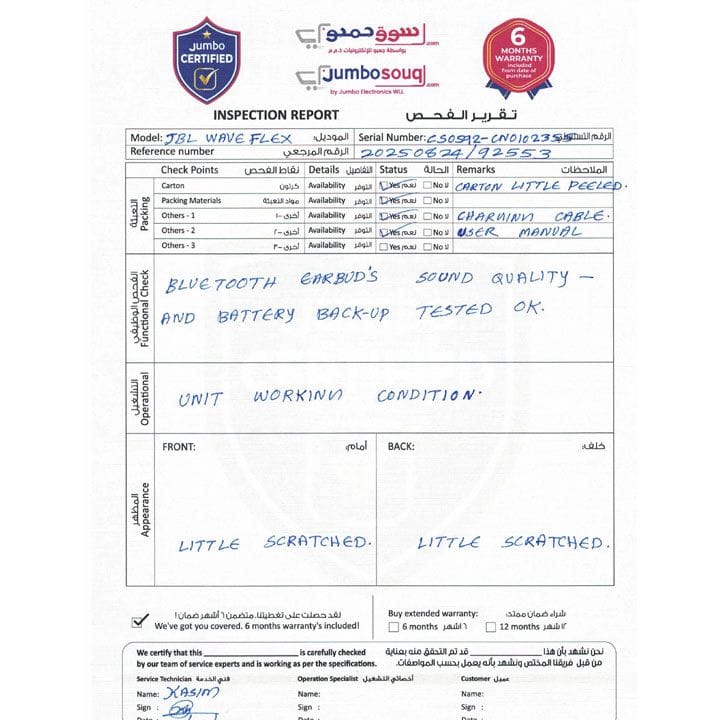 Jumbo
CERTIFIED
سوق جمبو.com
بواسطة جمبو للإلكترونيات ذ.م.م
jumbosouq.com
by Jumbo Electronics WLL
6
MONTHS
WARRANTY
included
from date of
purchase
INSPECTION REPORT تقرير الفحص
Model: JBL WAVE FLEX الموديل: Serial Number: الرقم التسلسلي
Reference number الرقم المرجعي 20250824/92553
Check Points نقاط الفحص Details التفاصيل Status الحالة Remarks الملاحظات
التعبئة Packing
Carton كرتون Availability التوفر Yes نعم No لا CARTON LITTLE PEELED.
Packing Materials مواد التعبئة Availability التوفر Yes نعم No لا
Others - 1 أخرى -١ Availability التوفر Yes نعم No لا CHARNINN CABLE.
Others - 2 أخرى -٢ Availability التوفر Yes نعم No لا USER MANUAL
Others - 3 أخرى -٣ Availability التوفر Yes نعم No لا
الفحص الوظيفي Functional Check
BLUETOOTH EARBUD'S SOUND QUALITY –
AND BATTERY BACK-UP TESTED OK.
التشغيل Operational
UNIT WORKINN CONDITION.
المظهر Appearance
FRONT: أمام: BACK: خلف:
LITTLE SCRATCHED. LITTLE SCRATCHED.
لقد حصلت على تغطيتنا، متضمن ٦ أشهر ضمان!
We've got you covered. 6 months warranty's included!
Buy extended warranty: شراء ضمان ممتد:
6 months ٦ اشهر 12 months ١٢ شهر
We certify that this is carefully checked نحن نشهد بأن هذا قد تم التحقق منه بعناية
by our team of service experts and is working as per the specifications. من قبل فريقنا المختص ونشهد بأنه يعمل بحسب المواصفات.
Service Technician فني الخدمة Operation Specialist أخصائي التشغيل Customer عميل
Name: KASIM Name: Name:
Sign : Sign : Sign :